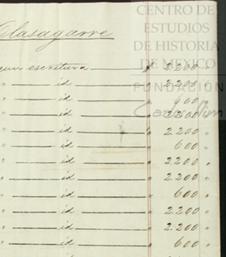 CENTRO DE
ESTUDIOS
DE HISTORIA
DE MÉXICO
FUNDACIÓN
escritura " 2200 "
" id " 2200 "
" id "
" id " 2200
" id " 2200 "
" id " 600 "
" id " 2200 "
" id " 2200 "
" id " 600 "
" id " 2200 "
" id " 2.200 "
" id " 600 "